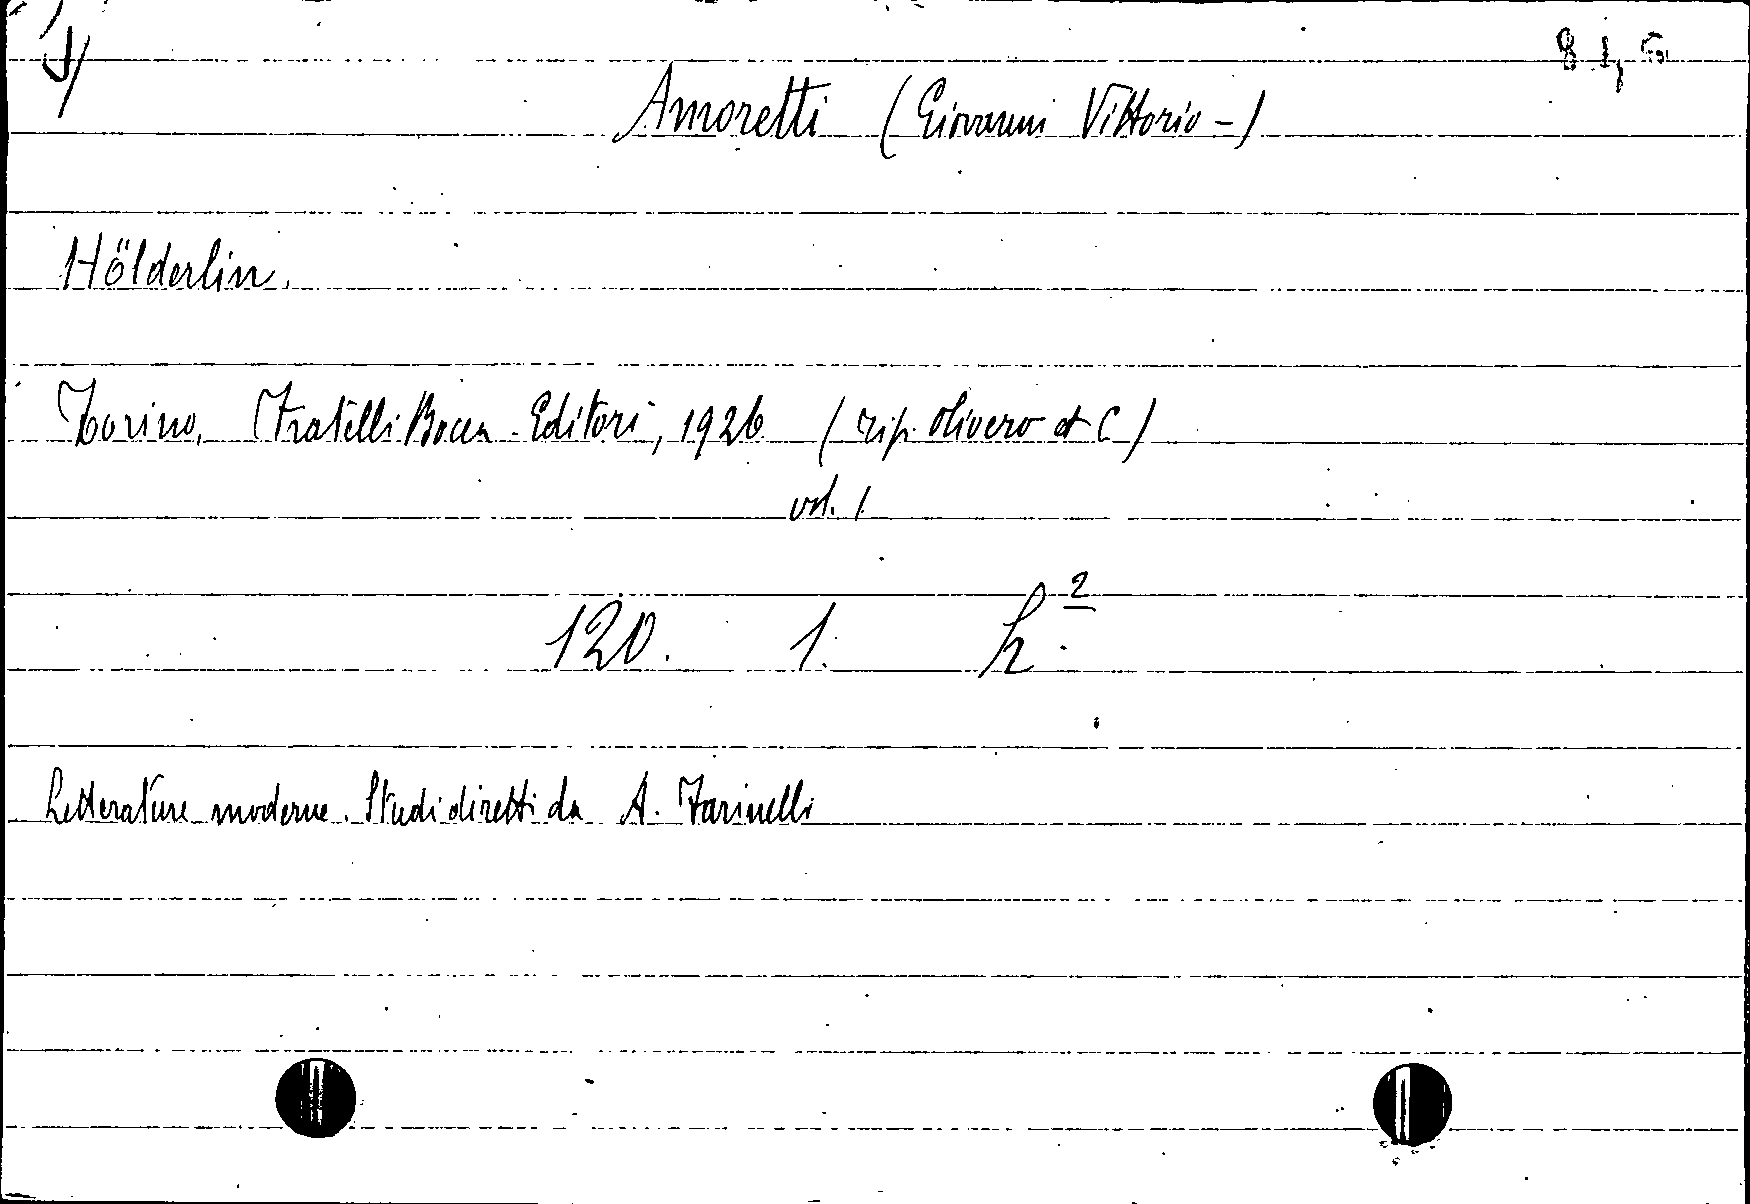 Amoretti (Giovanni Vittorio -)
Hölderlin.
Torino, Fratelli Bocca Editori, 1926 (tip. Olivero et C)
vol. 1
120. 1. h.²
Letterature moderne. Studi diretti da A. Farinelli